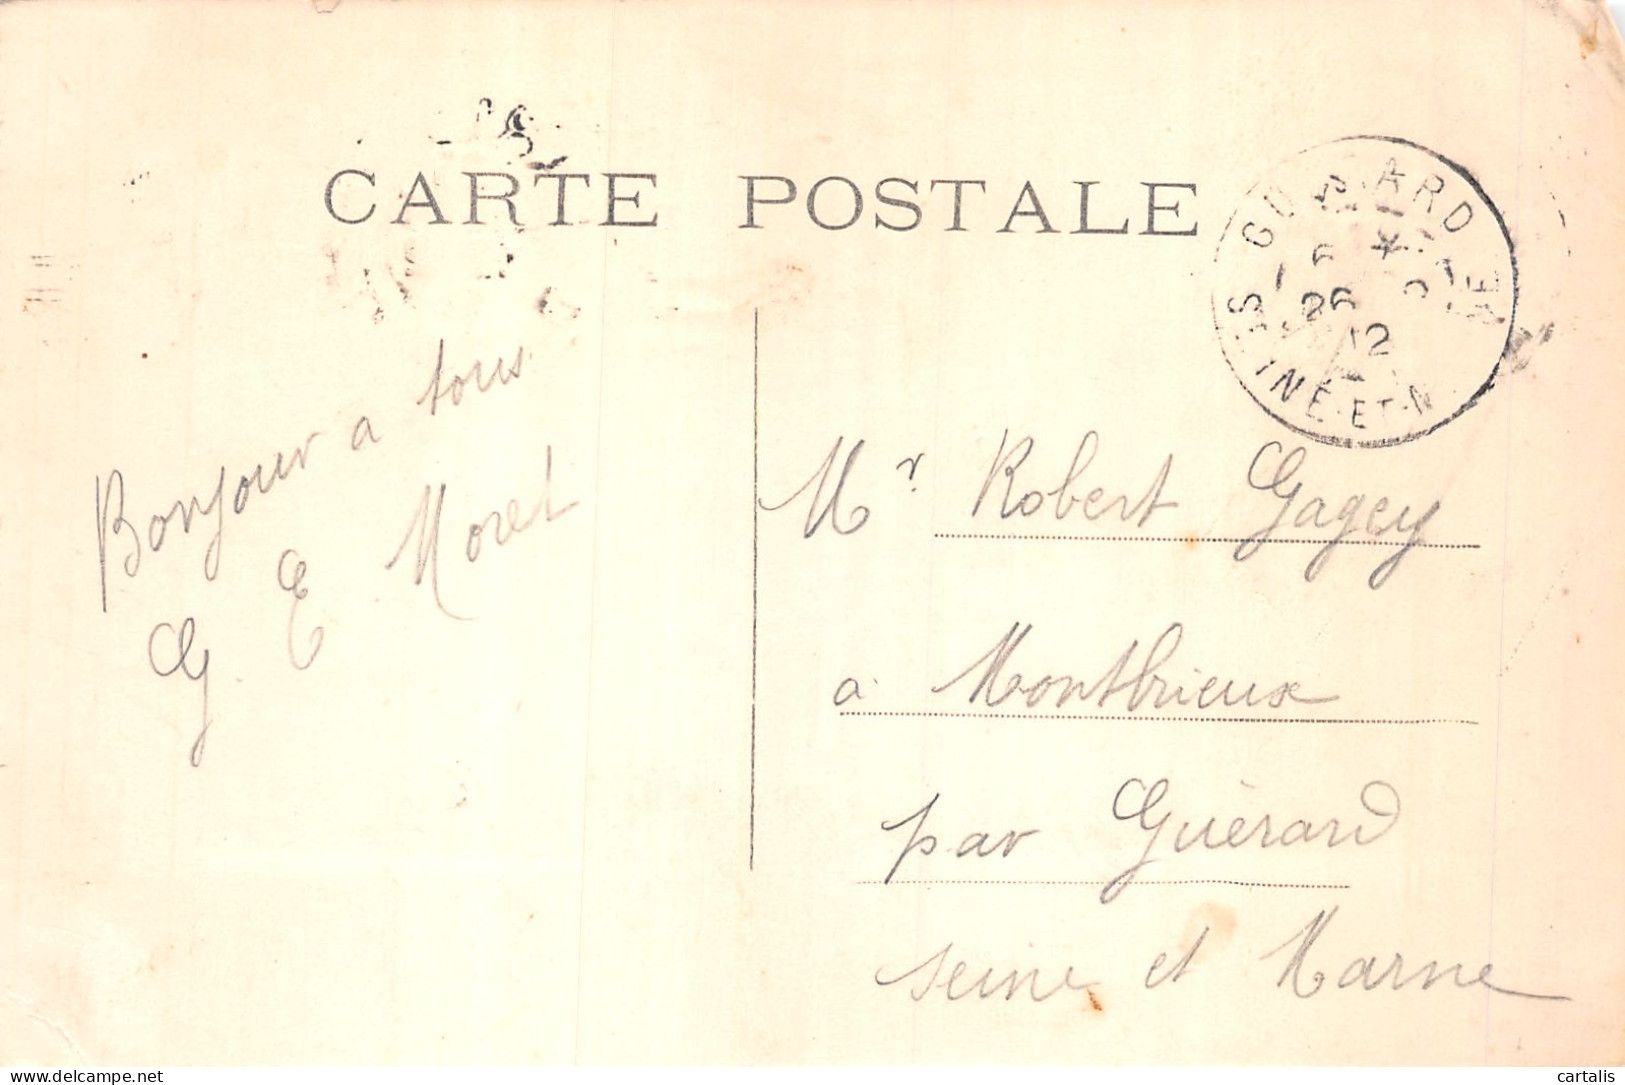 CARTE POSTALE
GUÉRARD
6 *
26 2
12
SEINE-ET-M NE
Bonjour a tous
G E Moret
Mr Robert Gagey
a Montbrieux
par Guérard
seine et Marne
delcampe.net
cartalis